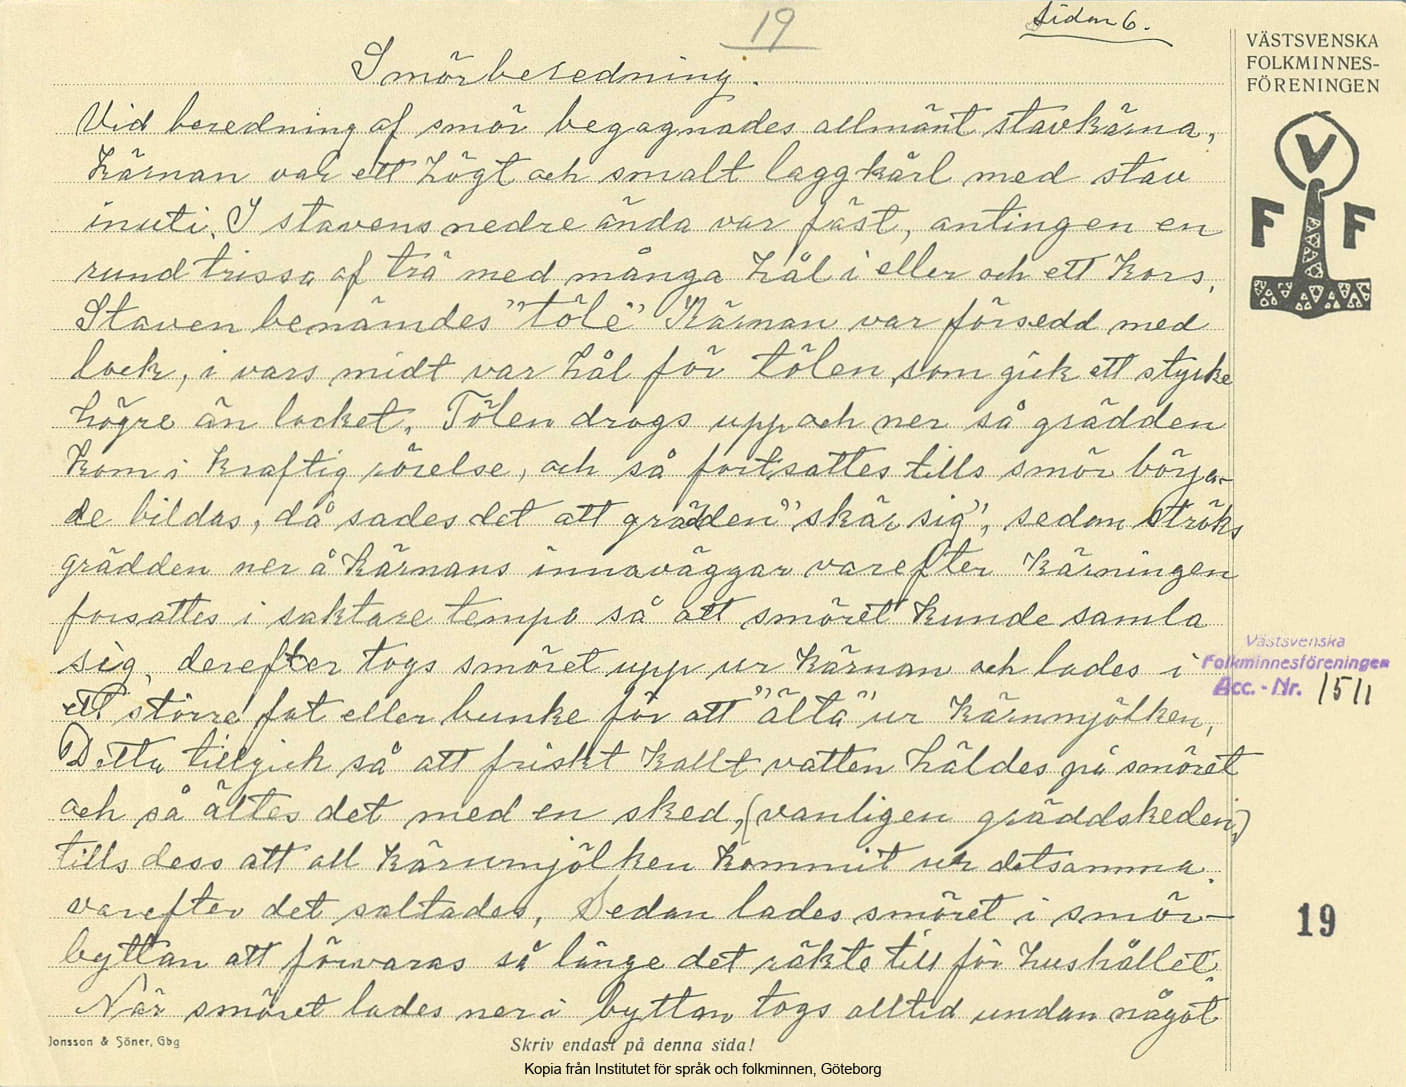 19
Sidan 6.
VÄSTSVENSKA
FOLKMINNES-
FÖRENINGEN
V
F F
Smörberedning.
Vid beredning af smör begagnades allmänt stavkärna,
Kärnan var ett högt och smalt laggkärl med stav
inuti. I stavens nedre ända var fäst, antingen en
rund trissa af trä med många hål i eller och ett Kors.
Staven benämdes "töle" Kärnan var försedd med
lock, i vars midt var hål för tölen, som gick ett stycke
högre än locket. Tölen drogs upp och ner så grädden
kom i kraftig rörelse, och så fortsattes tills smör börja-
de bildas, då sades det att grädden "skär sig", sedan ströks
grädden ner å Kärnans innaväggar varefter Kärningen
forsattes i saktare tempo så att smöret kunde samla
sig, derefter togs smöret upp ur Kärnan och lades i
ett större fat eller bunke för att "älta" ur Kärnmjölken,
Detta tillgick så att friskt kallt vatten häldes på smöret
och så ältes det med en sked, (vanligen gräddskeden,)
tills dess att all kärnmjölken kommit ur detsamma.
varefter det saltades, Sedan lades smöret i smör-
byttan att förvaras så länge det räkte till för hushållet.
När smöret lades ner i byttan togs alltid undan något
Västsvenska
Folkminnesföreningen
Acc.-Nr. 1511
19
Jonsson & Söner, Gbg
Skriv endast på denna sida!
Kopia från Institutet för språk och folkminnen, Göteborg